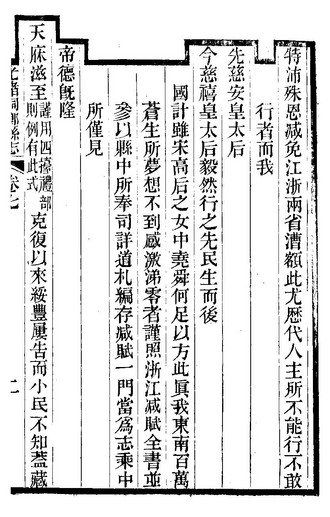 特沛殊恩减免江浙兩省漕額此尤歷代人主所不能行不敢
行者而我
先慈安皇太后
今慈禧皇太后毅然行之先民生而後
國計雖宋高后之女中堯舜何足以方此眞我東南百萬
蒼生所夢想不到感激涕零者謹照浙江减賦全書並
參以縣中所奉司詳道札編存减賦一門當爲志乘中
所僅見
帝德旣隆
天庥滋至謹用四擡禮部
則例有此式克復以來綏豐屢告而小民不知蓋藏
光緒桐鄉縣志
卷七
二